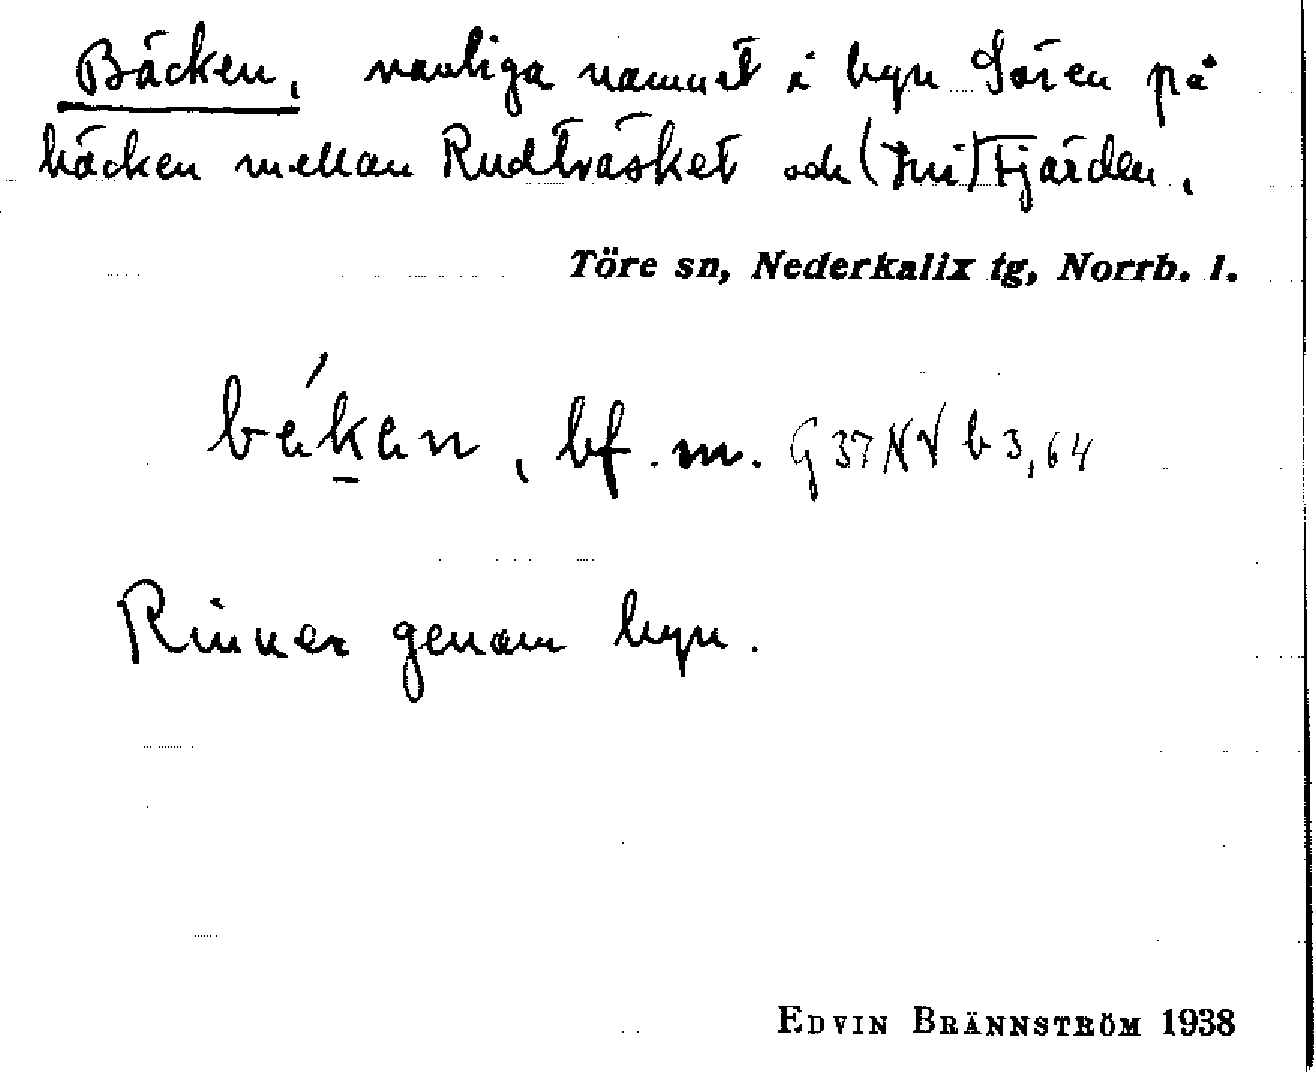 Bäcken, vanliga namnet i byn Sören på
bäcken mellan Rudträsket och (Inri)Fjärden.
Töre sn, Nederkalix tg, Norrb. l.
békan, bf. m. G37NV b 3,64
Rinner genom byn.
EDVIN BRÄNNSTRÖM 1938